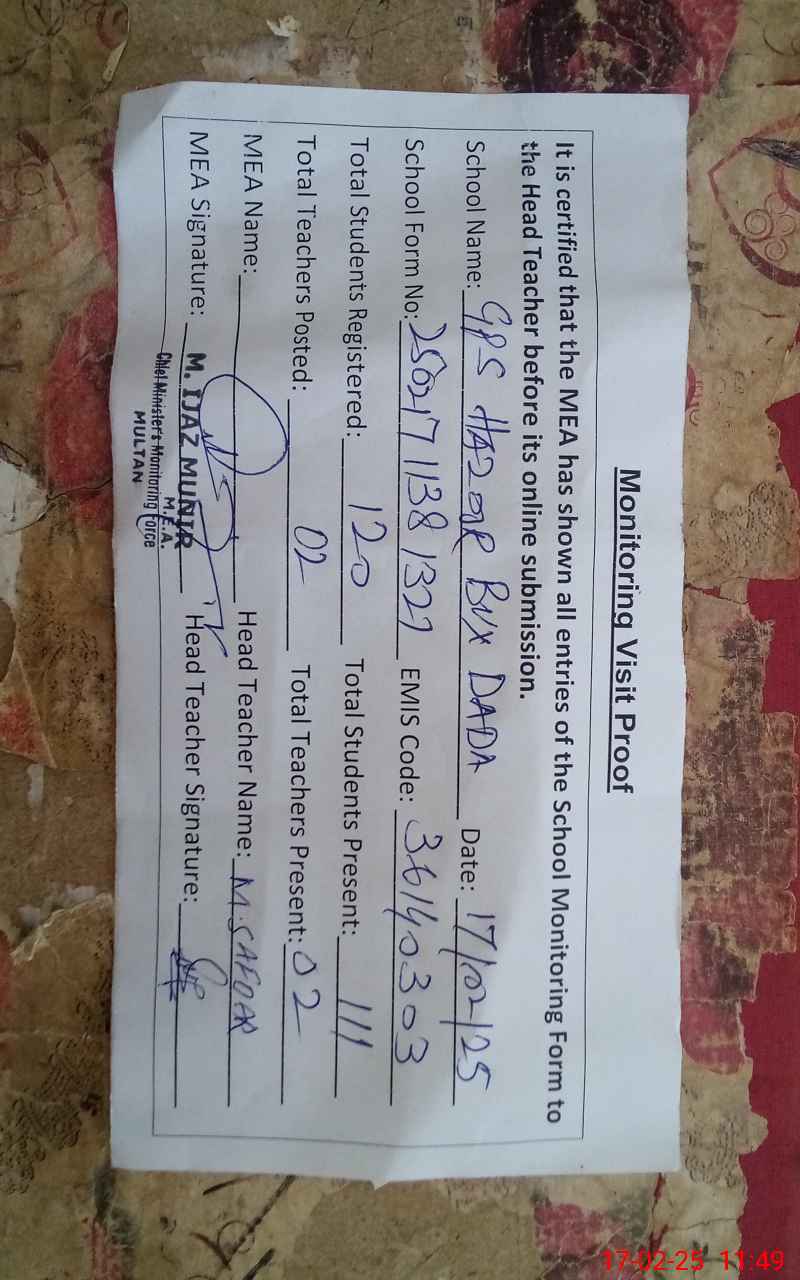 Monitoring Visit Proof
It is certified that the MEA has shown all entries of the School Monitoring Form to
the Head Teacher before its online submission.
School Name: GPS HAZOOR BUX DADA Date: 17/02/25
School Form No: 250217 1138 1327 EMIS Code: 36140303
Total Students Registered: 120 Total Students Present: 111
Total Teachers Posted: 02 Total Teachers Present: 02
MEA Name: Head Teacher Name: M. SAFDAR
MEA Signature: M. IJAZ MUNIR Head Teacher Signature:
M.E.A.
Chief Minister's Monitoring Force
MULTAN
17-02-25 11:49